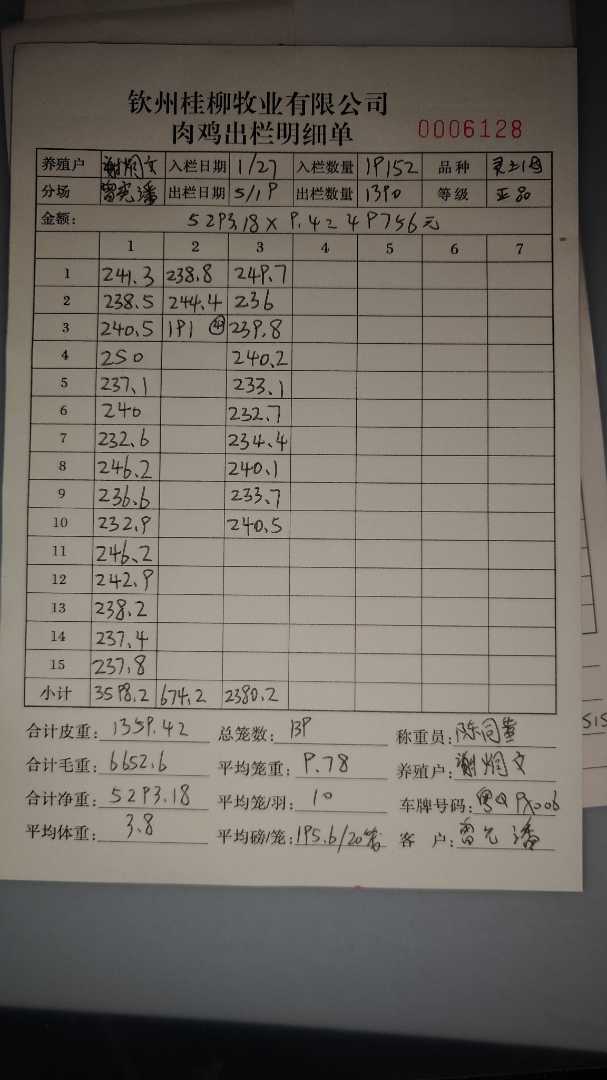 钦州桂柳牧业有限公司
肉鸡出栏明细单 0006128
养殖户 谢炯文 入栏日期 1/27 入栏数量 19152 品种
分场 出栏日期 5/19 出栏数量 1390 等级 正品
金额: 5293.18×9.4=49756元
1 2 3 4 5 6 7
1 241.3 238.8 249.7
2 238.5 244.4 236
3 240.5 191 ④ 239.8
4 250 240.2
5 237.1 233.1
6 240 232.7
7 232.6 234.4
8 246.2 240.1
9 236.6 233.7
10 232.9 240.5
11 246.2
12 242.9
13 238.2
14 237.4
15 237.8
小计 3598.2 674.2 2380.2
合计皮重: 1359.42 总笼数: 139 称重员:
合计毛重: 6652.6 平均笼重: 9.78 养殖户: 谢炯文
合计净重: 5293.18 平均笼/羽: 10 车牌号码:
平均体重: 3.8 平均磅/笼: 195.6/20笼 客 户: